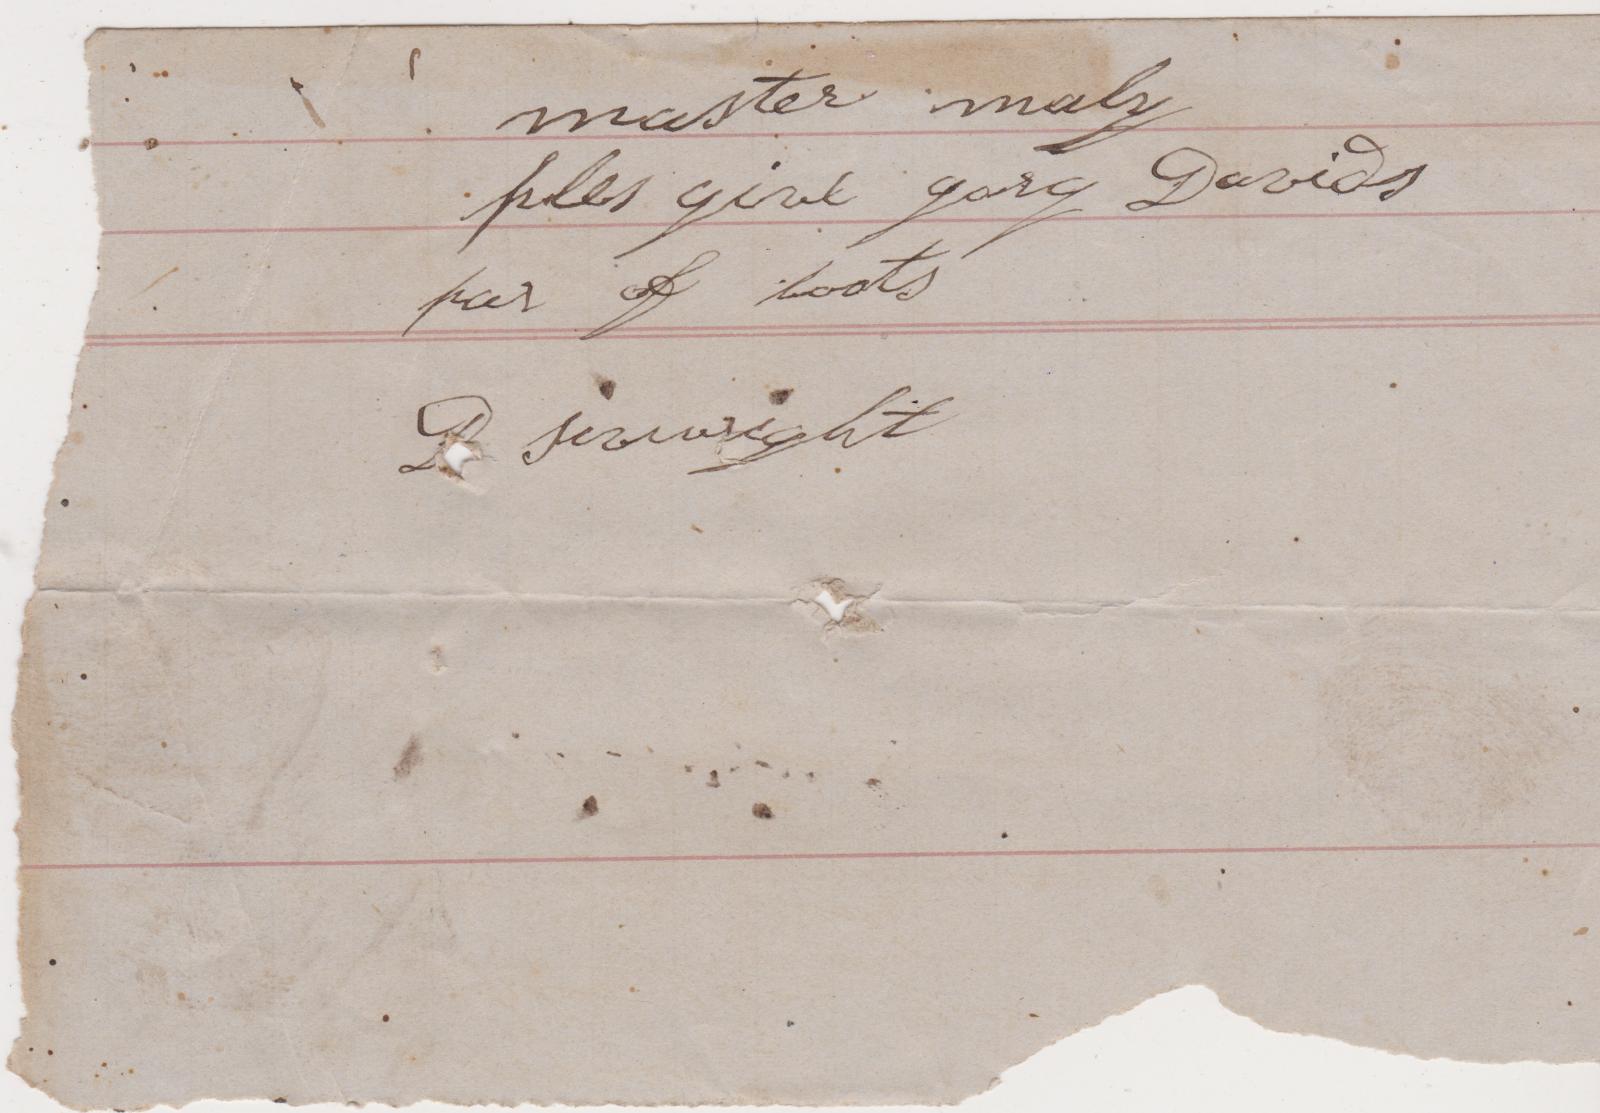 master maly
ples give gorg Davids
par of boots
D siruwright